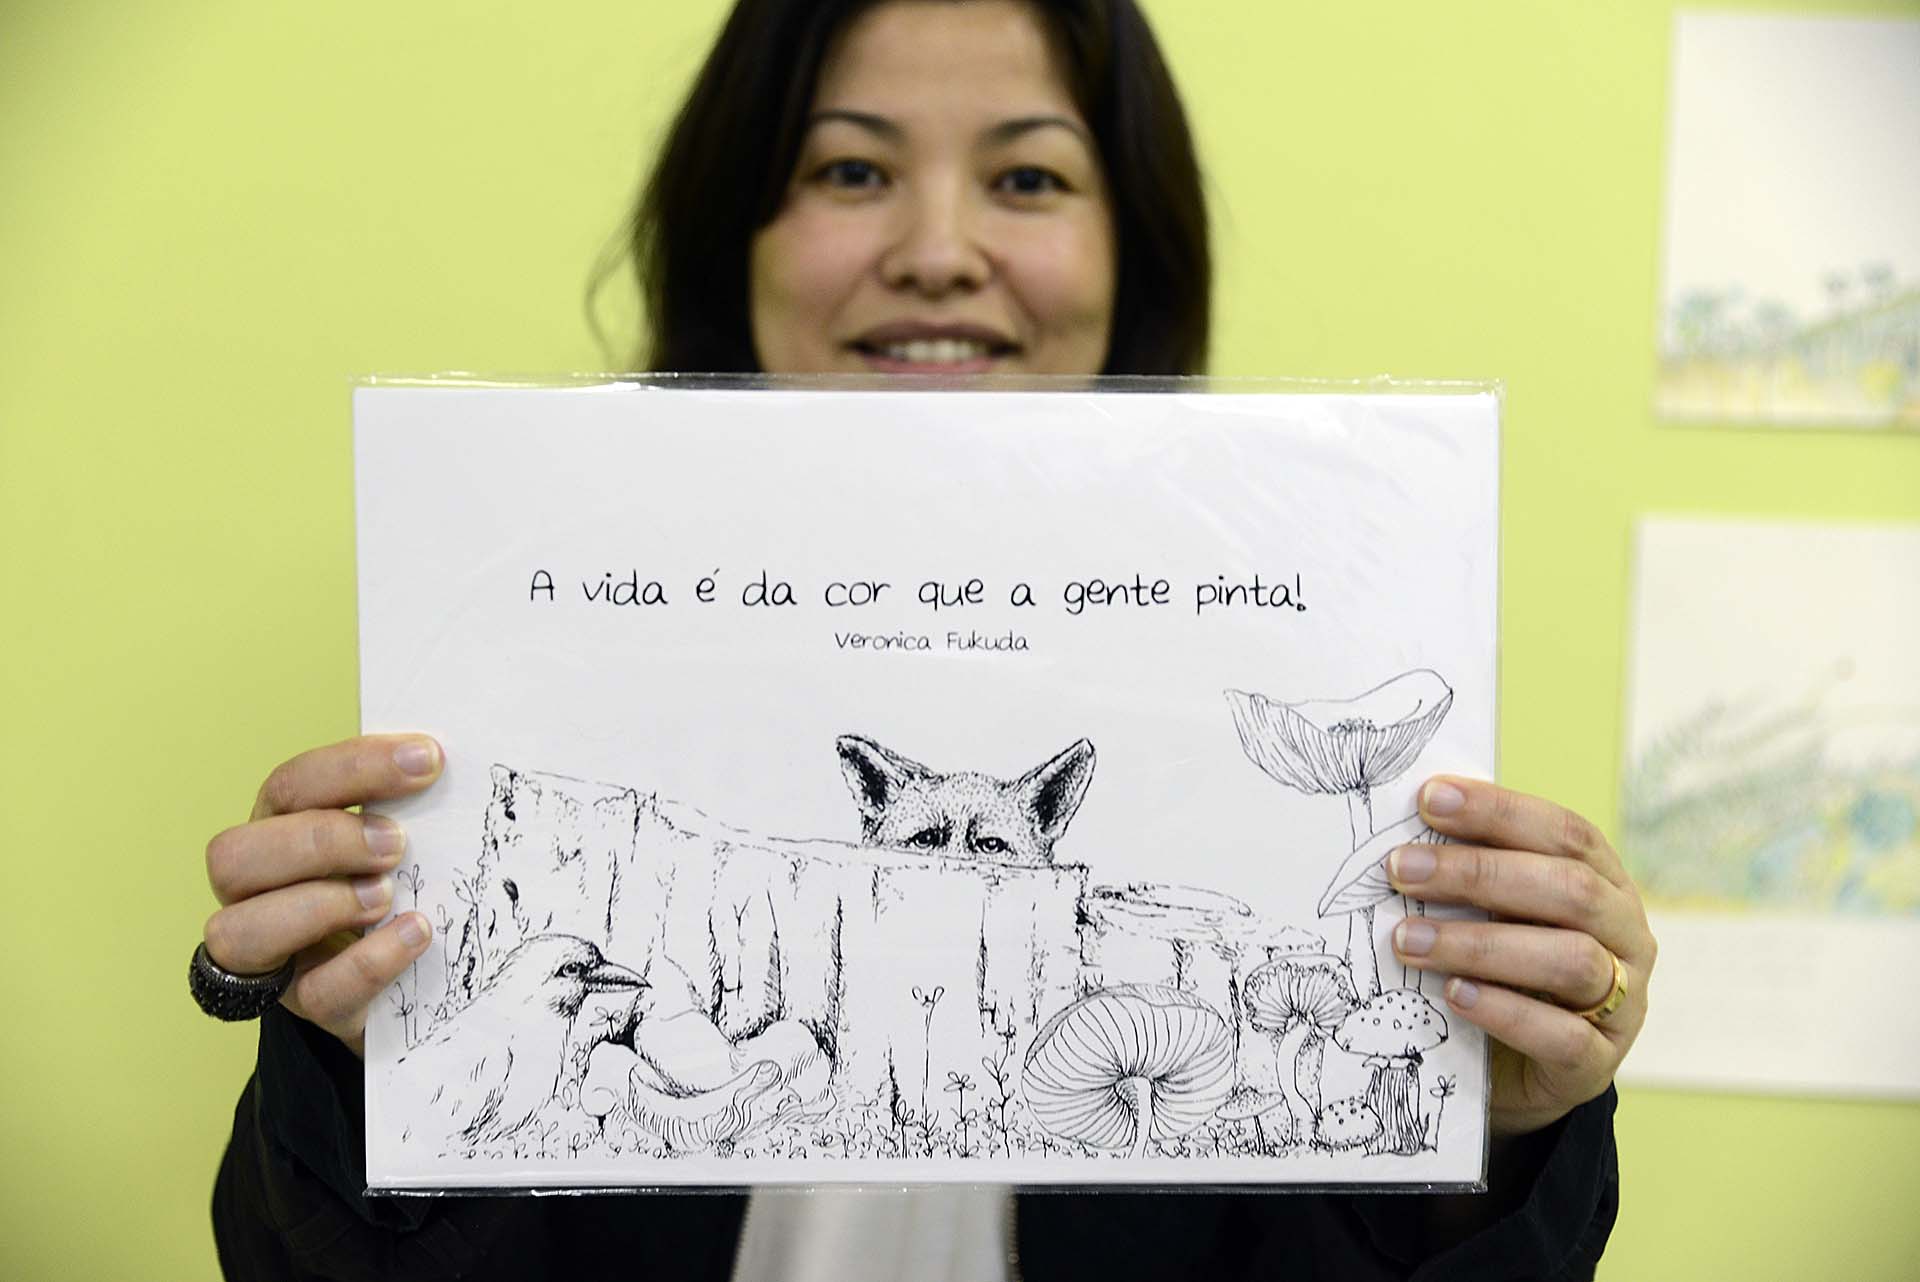 A vida é da cor que a gente pinta!
Veronica Fukuda